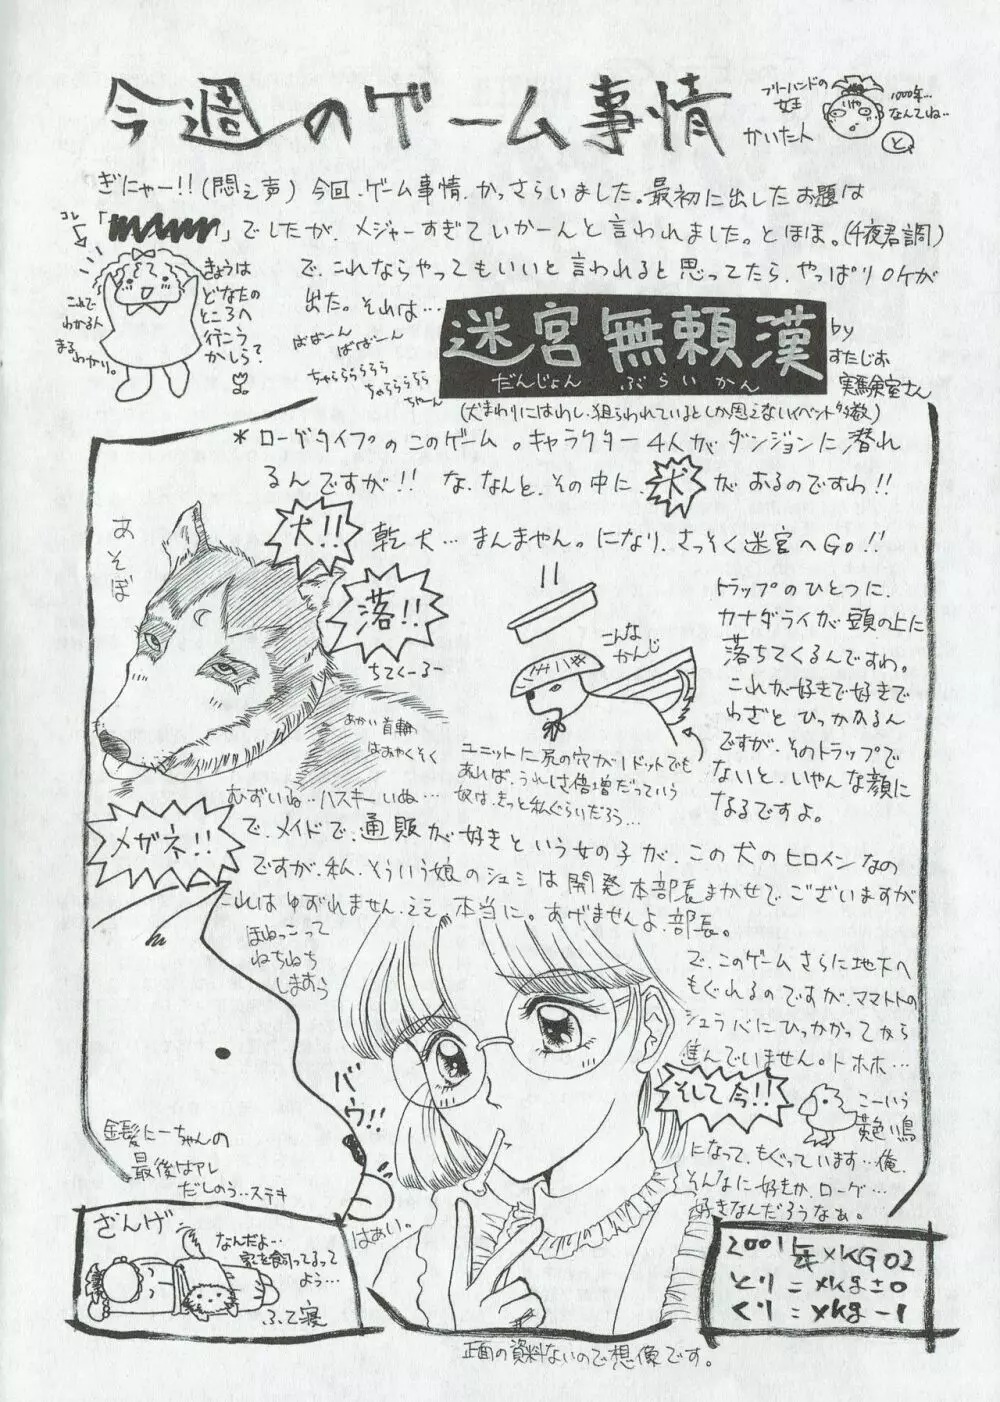 今週のゲーム事情
フリーハンドの
女王
かいた人
いや
1000年…
なんてね…
と
ぎにゃー!!(悶え声) 今回、ゲーム事情、かっさらいました。最初に出したお題は
「　」でしたが、メジャーすぎていかーんと言われました。とほほ。(千夜君調)
コレ
で、これならやってもいいと言われると思ってたら、やっぱりOKが
出た。それは…
きょうは
どなたの
ところへ
行こう
かしら?
これで
わかる人
まる
わかり。
ばばーん
ばばーん
ちゃららららら
ちゅらららら
ちゃーん
迷宮無頼漢
だんじょん ぶらいかん
by
すたじお
実験室さん
(犬まわりにはわし、狙らわれているとしか思えないイベント多数)
*ローグタイプのこのゲーム。キャラクター4人がダンジョンに潜れ
るんですが!! な、なんと、その中に、犬がおるのですわ!!
犬!! 乾犬…まんまやん。になり、さっそく迷宮へGO!!
あそぼ
落!!
ちてくーるー
こんな
かんじ
トラップのひとつに、
カナダライが頭の上に
落ちてくるんですわ。
これが好きで好きで
わざとひっかかるん
ですが、そのトラップで
ないと、いやんな顔に
なるですよ。
あかい首輪
はおやくそく
ユニットに尻の穴が1ドットでも
あれば、うれしさ倍増だっていう
奴は、きっと私ぐらいだろう…
むずいね…ハスキーいぬ…
メガネ!! で、メイドで、通販が好きという女の子が、この犬のヒロインなの
ですが、私、そういう娘のシュミは開発本部長まかせで、ございますが
これはゆずれません、ええ、本当に。あげませんよ、部長。
ほねっこって
ねちねち
しますう
で、このゲームさらに地下へ
もぐれるのですが、ママトトの
シュラバにひっかかってから
進んでいません。トホホ…
そして今!!
こーいう
黄色い鳥
になって、もぐっています…俺、
そんなに好きか、ローグ…
好きなんだろうなぁ。
バウ!!
金髪にーちゃんの
最後はアレ
だしのう…ステキ
はあい。
ざんげ
なんだよ…
家を飼ってるって
よう…
ふて寝
2001年×KG02
とり=×kg±0
くり=×kg-1
正面の資料ないので想像です。